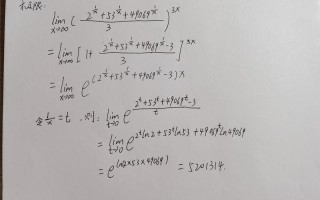 lim x→∞ ( (2^(1/x) + 53^(1/x) + 49069^(1/x)) / 3 )^(3x)
= lim x→∞ [ 1 + (2^(1/x) + 53^(1/x) + 49069^(1/x) - 3) / 3 ]^(3x)
= lim x→∞ e^((2^(1/x) + 53^(1/x) + 49069^(1/x) - 3)x)
令 1/x = t , 则: lim t→0 e^((2^t + 53^t + 49069^t - 3) / t)
= lim t→0 e^(2^t ln2 + 53^t ln53 + 49069^t ln49069)
= e^(ln2×53×49069) = 5201314.